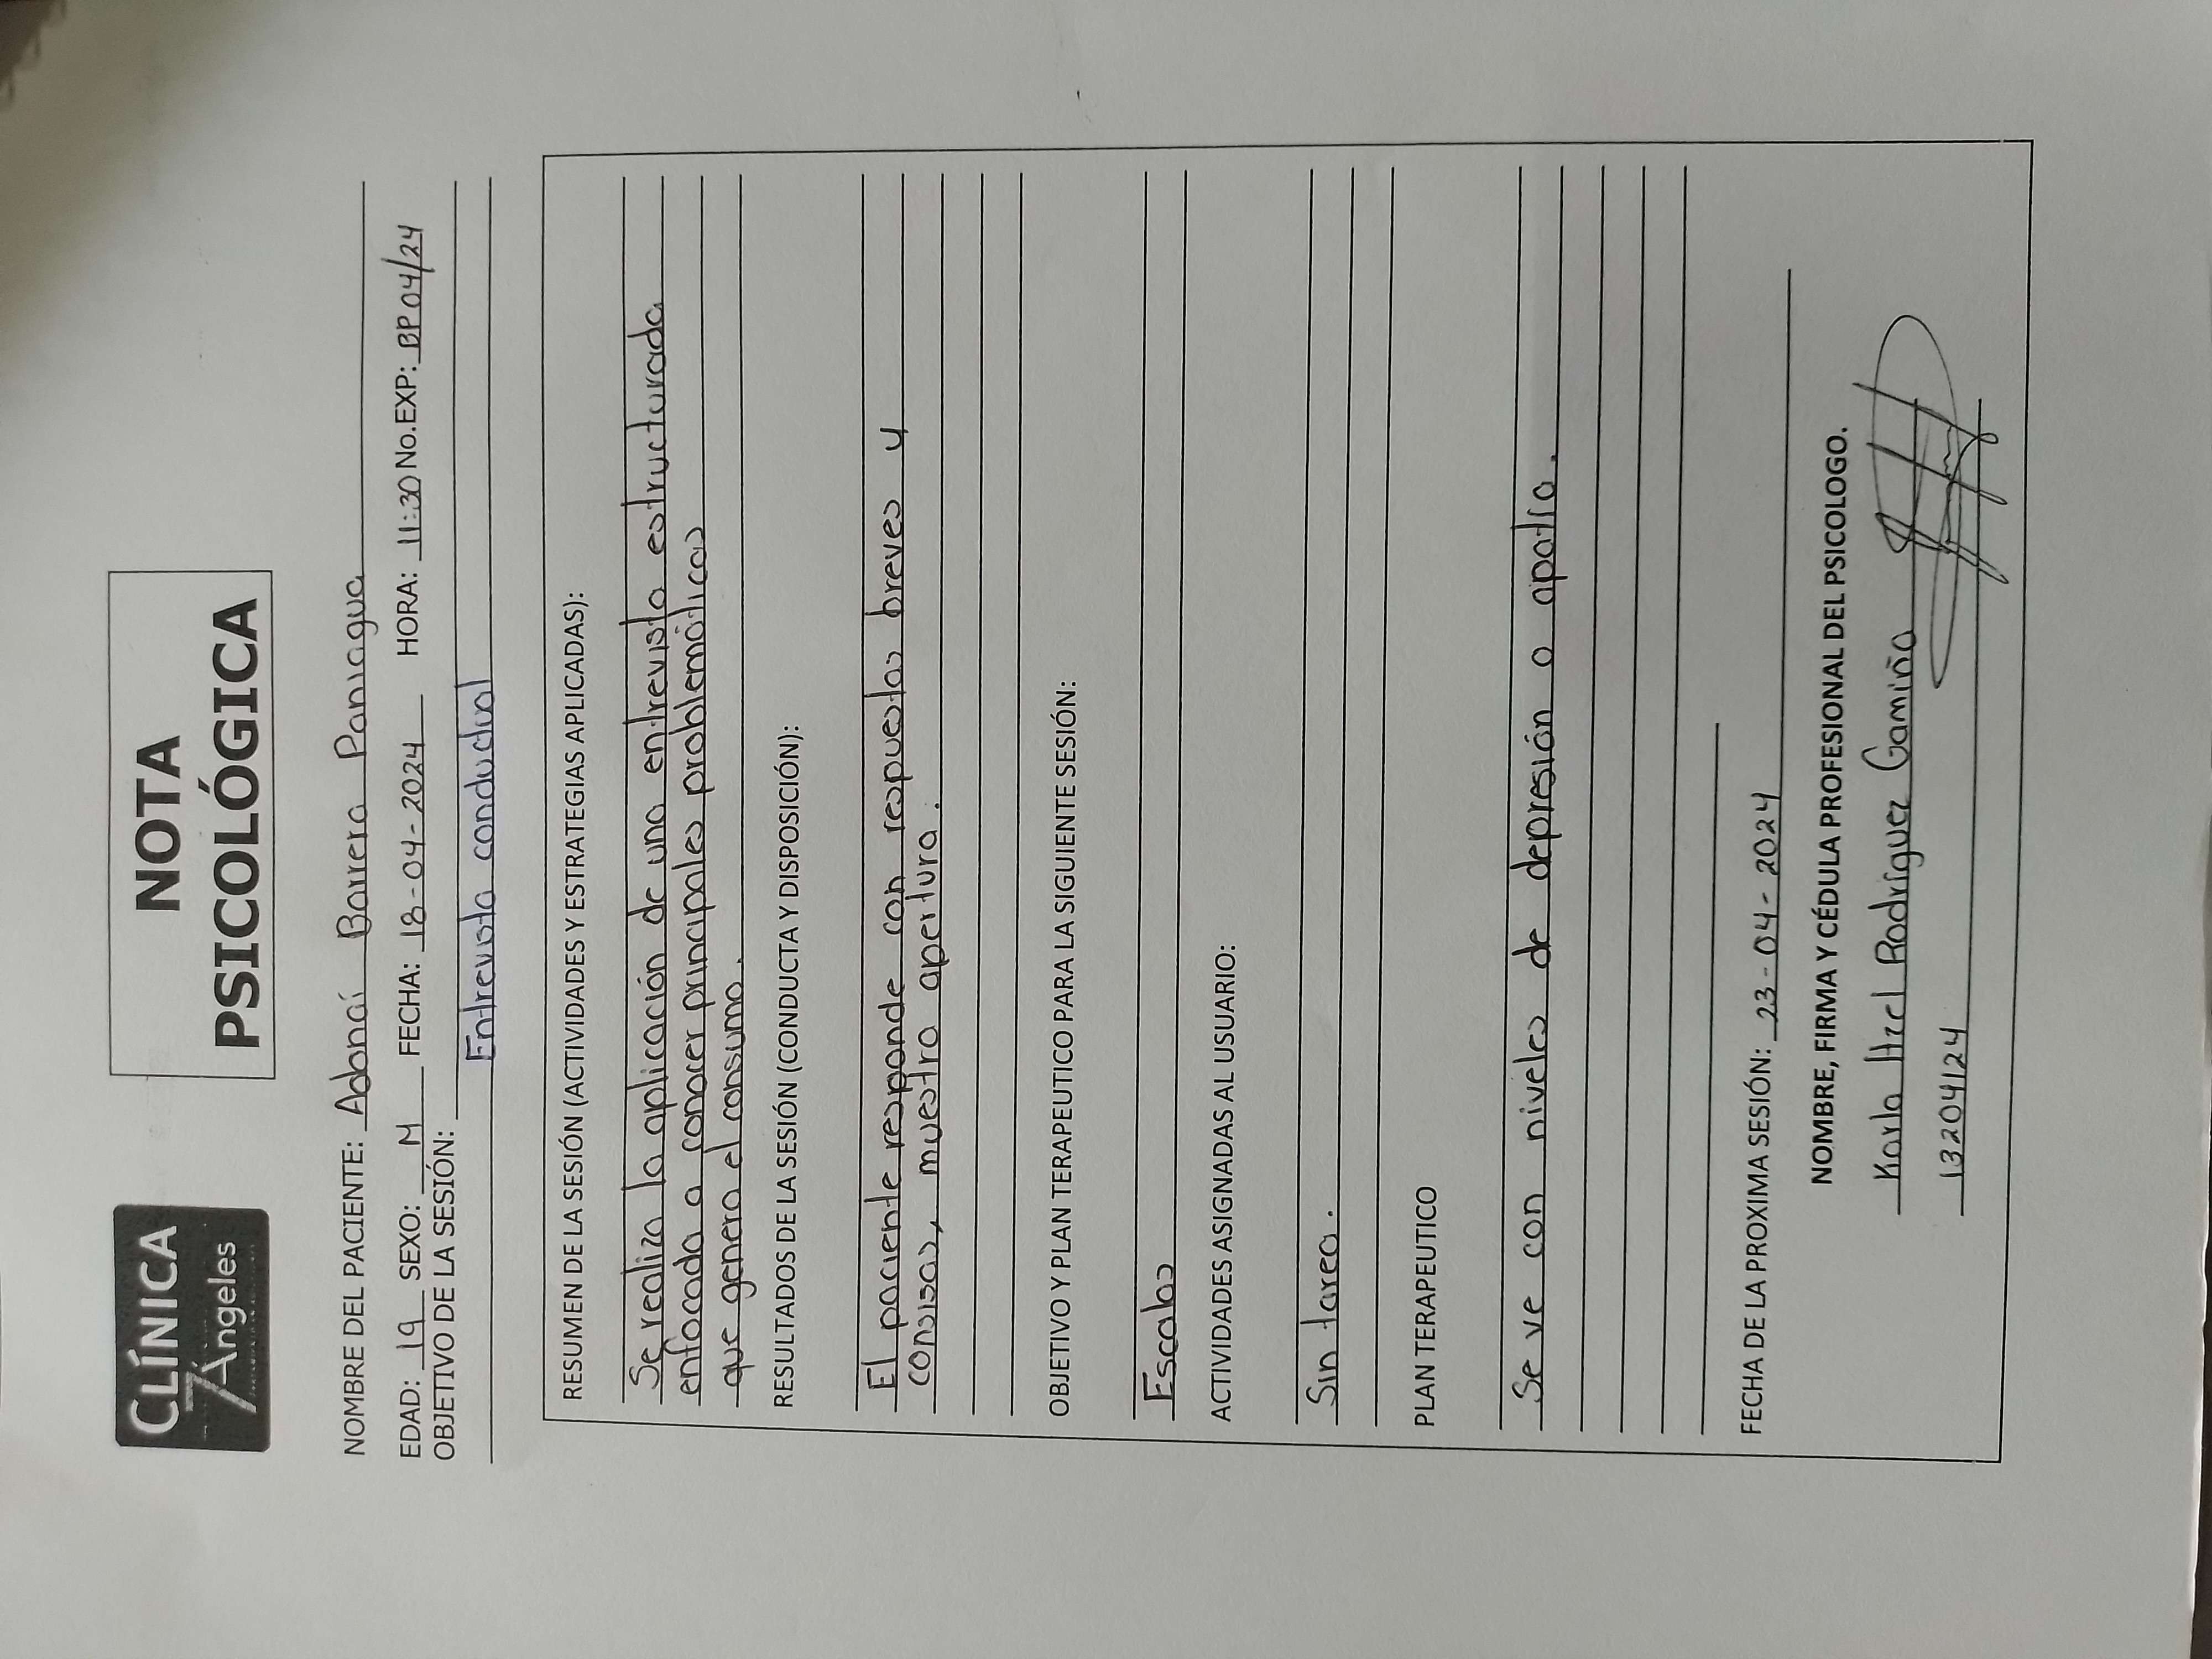 CLÍNICA
7 Ángeles
NOTA
PSICOLÓGICA
NOMBRE DEL PACIENTE: Adonaí Barrera Paniagua
EDAD: 19 SEXO: M FECHA: 18-04-2024 HORA: 11:30 No.EXP: BP04/24
OBJETIVO DE LA SESIÓN:
Entrevista conductual
RESUMEN DE LA SESIÓN (ACTIVIDADES Y ESTRATEGIAS APLICADAS):
Se realiza la aplicación de una entrevista estructurada
enfocada a conocer principales problemáticas
que genera el consumo.
RESULTADOS DE LA SESIÓN (CONDUCTA Y DISPOSICIÓN):
El paciente responde con respuestas breves y
consisas, muestra apertura.
OBJETIVO Y PLAN TERAPEUTICO PARA LA SIGUIENTE SESIÓN:
Escalas
ACTIVIDADES ASIGNADAS AL USUARIO:
Sin tarea.
PLAN TERAPEUTICO
Se ve con niveles de depresión o apatía.
FECHA DE LA PROXIMA SESIÓN: 23-04-2024
NOMBRE, FIRMA Y CÉDULA PROFESIONAL DEL PSICOLOGO.
Karla Rodríguez Gamiño
13204124